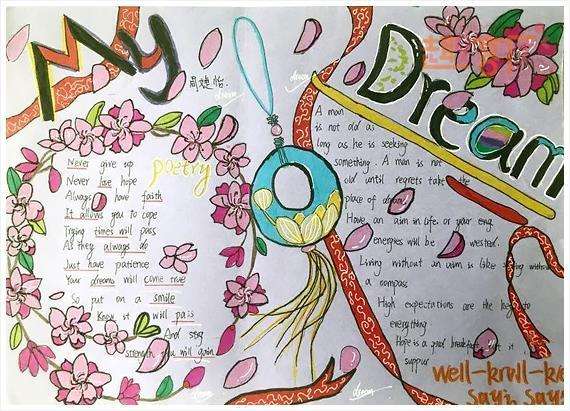 My
Dream
poetry
Never give up
Never lose hope
Always have faith
It allows you to cope
Trying times will pass
As they always do
Just have patience
Your dreams will come true
So put on a smile
Know it will pass
And stay
strength you will gain
A man
is not old as
long as he is seeking
something. A man is not
old until regrets take the
place of dream
Have an aim in life, or your eng
energies will be wested.
Living without an aim is like without
a compass
High expectations are the key to
everything
Hope is a good breakfast, but it
suppur
well-knoll-kn
sayin say